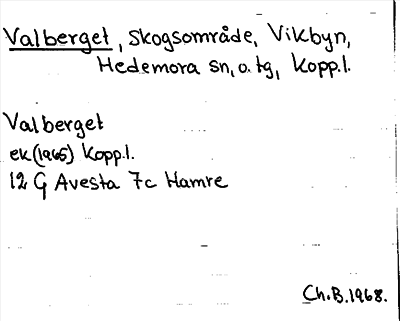 Valberget, Skogsområde, Vikbyn,
Hedemora sn, o. tg, Kopp.l.
Valberget
ek(1965) Kopp.l.
12 G Avesta 7c Hamre
Ch.B.1968.